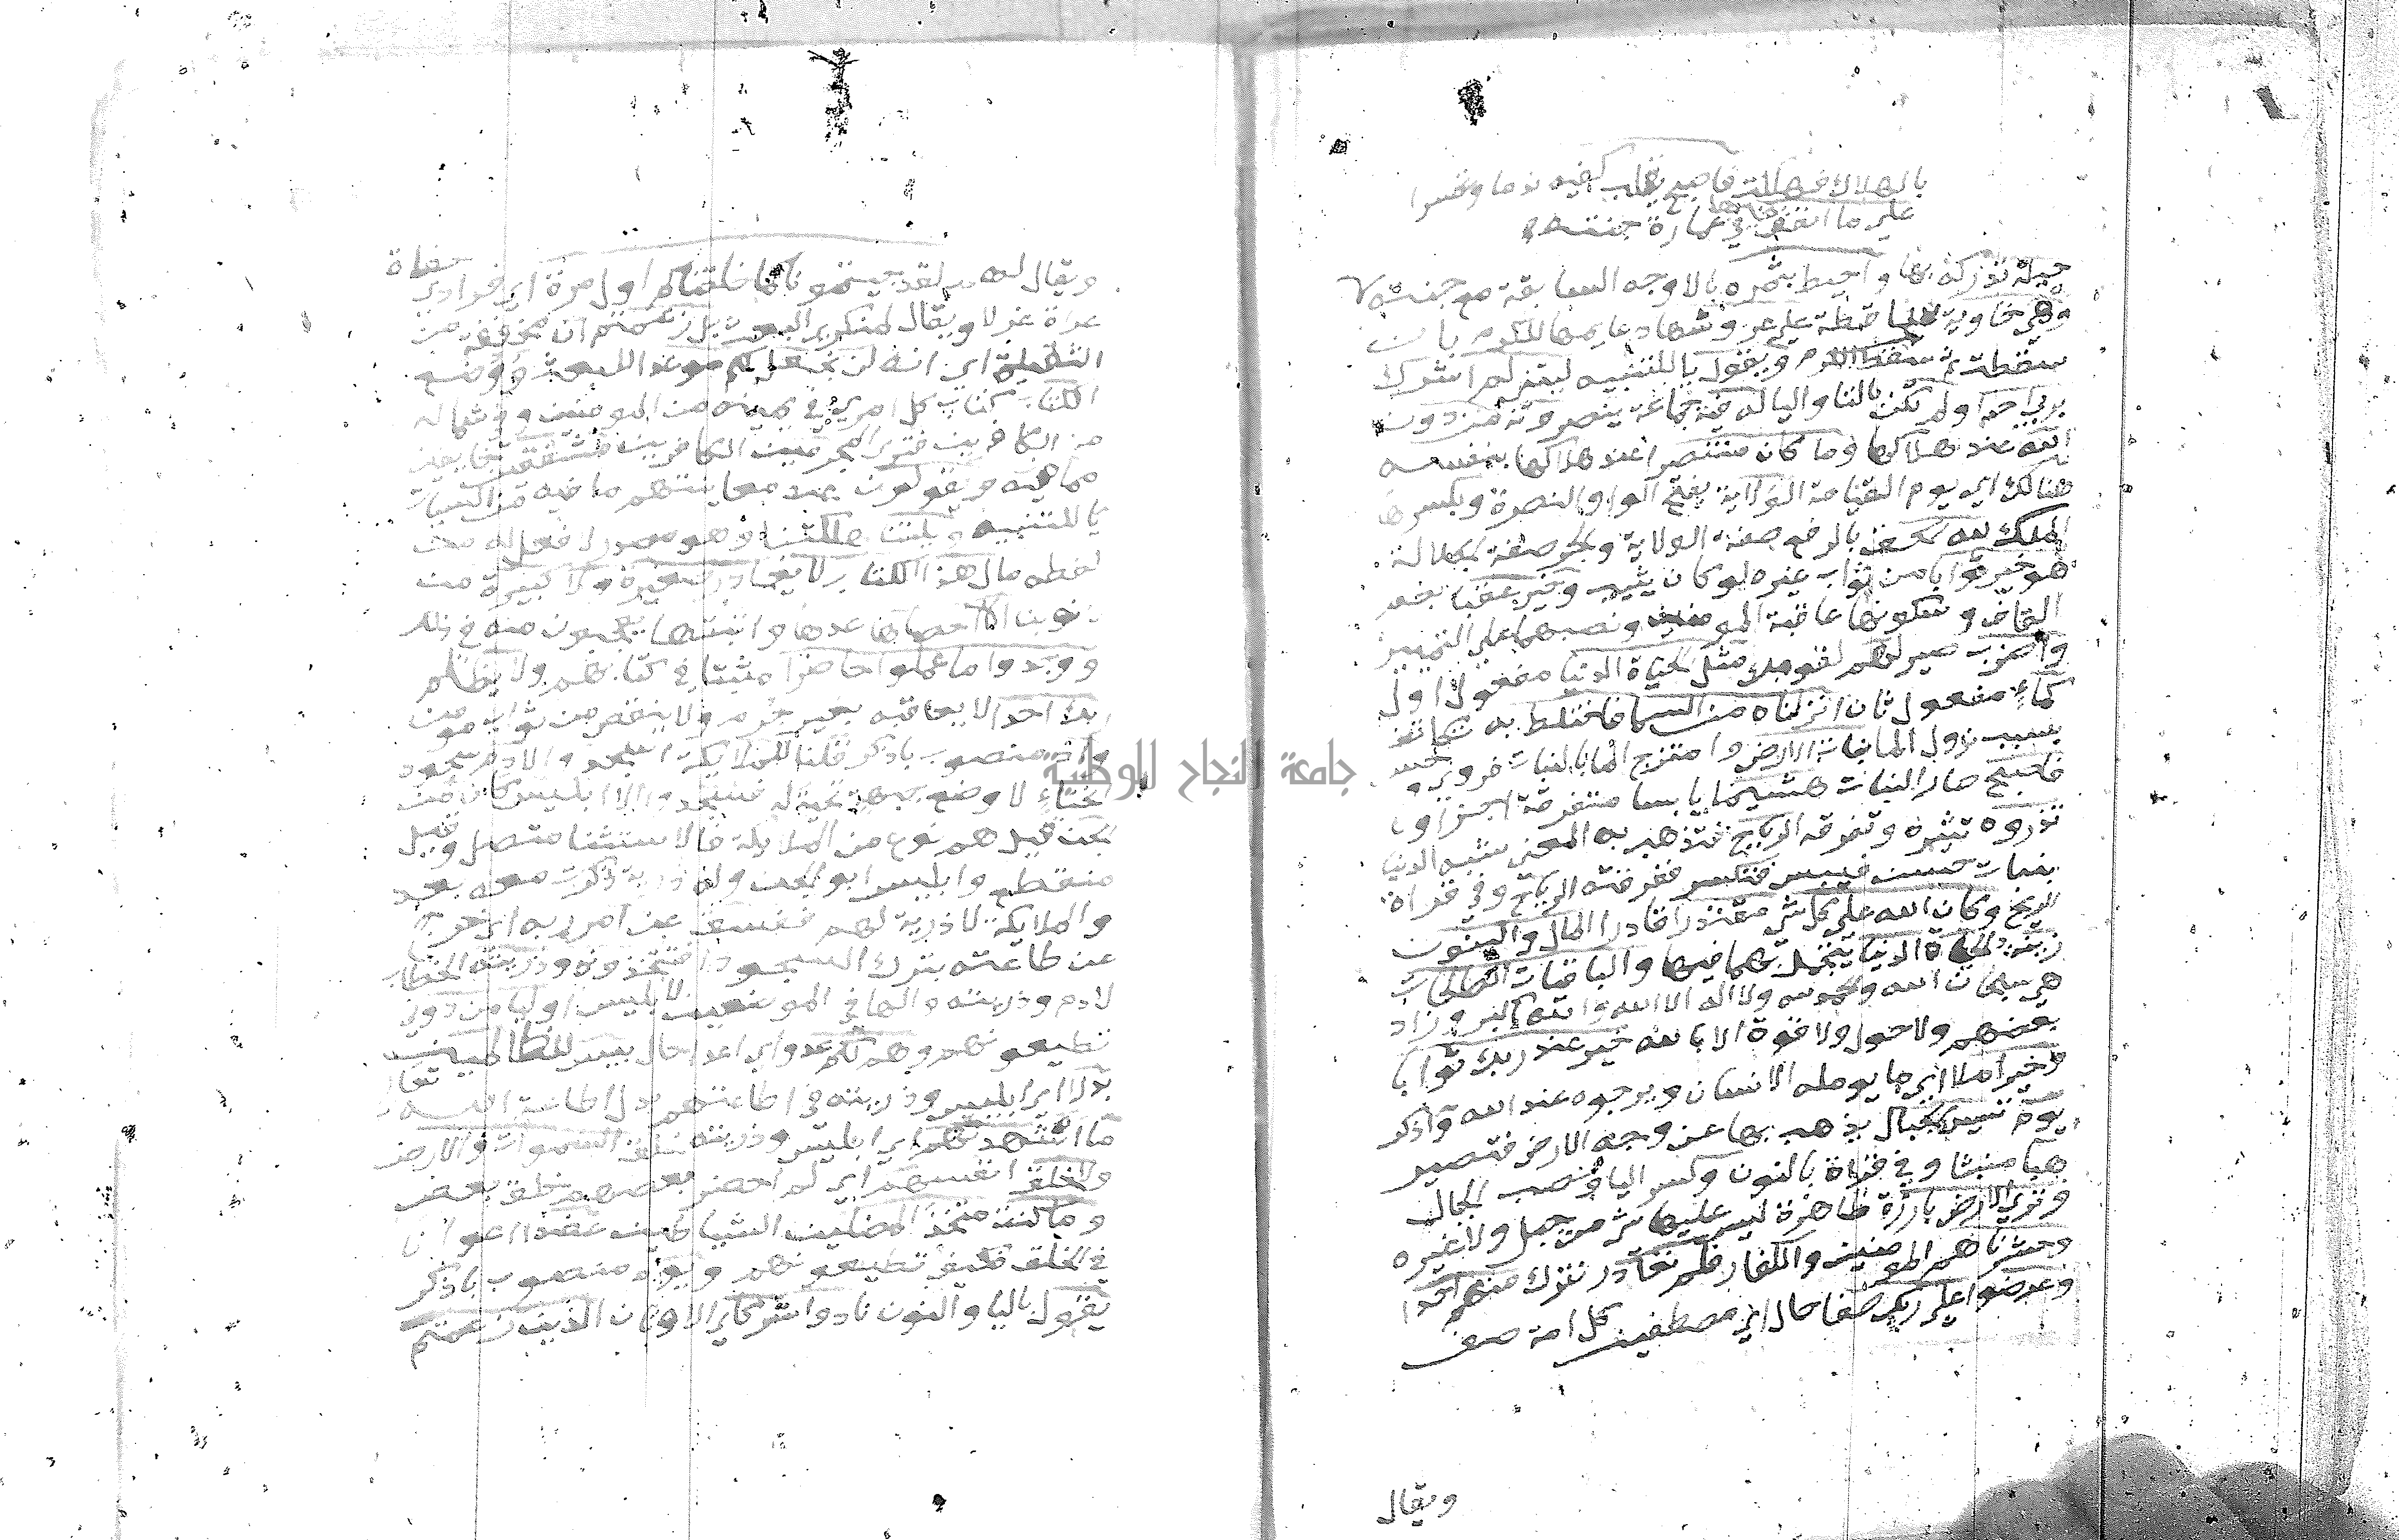 بالهلاك فهلكت فاصبح يقلب كفيه ندما وتحسرا
على ما انفق فيها في عمارة جنته
حيلة تدركه بها واحيط بثمره بالاوجه السابقة مع جنته
وهي خاوية ساقطة على عروشها دعايمها للكرم بان
سقطت ثم سقط الكرم ويقول يا للتنبيه ليتني لم اشرك
بربي احدا ولم تكن بالتا واليا له فية جماعة ينصرونه من دون
الله عند هلاكها وما كان منتصرا عند هلاكها بنفسه
هنالك اي يوم القيامة الولاية بفتح الواو النصرة وبكسرها
الملك لله الحق بالرفع صفة الولاية وبالجر صفة الجلالة
هو خير ثوابا من ثواب غيره لو كان يثيب وخير عقبا بضم
القاف وسكونها عاقبة المومنين ونصبهما على التمييز
واضرب صير لهم لقومك مثل الحياة الدنيا مفعول اول
كماء مفعول ثان انزلناه من السما فاختلط به تكاثف
بسبب نزول الما نبات الارض وامتزج الما بالنبات فروي وحسن
فاصبح صار النبات هشيما يابسا متفرقة اجزاوه
تذروه تنثره وتفرقه الرياح فتذهب به المعنى شبه الدنيا
بنبات حسن فيبس فتكسر ففرقته الرياح وفي قراة
الريح وكان الله على كل شي مقتدرا قادرا المال والبنون
زينة الحياة الدنيا يتجمل بهما فيها والباقيات الصالحات
هي سبحان الله والحمد لله ولا اله الا الله والله اكبر وزاد
بعضهم ولا حول ولا قوة الا بالله خير عند ربك ثوابا
وخير املا اي ما يومله الانسان ويرجوه عند الله واذكر
يوم تسير الجبال يذهب بها عن وجه الارض فتصير
هبا منبثا وفي قراة بالنون وكسر اليا ونصب الجبال
وترى الارض بارزة ظاهرة ليس عليها شي من جبل ولا غيره
وحشرناهم المومنين والكفار فلم نغادر نترك منهم احدا
وعرضوا على ربك صفا حال اي مصطفين كل امة صف
ويقال
ويقال لهم لقد جيتمونا كما خلقناكم اول مرة اي فرادى حفاة
عراة غرلا ويقال لمنكري البعث بل زعمتم ان مخففة من
الثقيلة اي انه لن نجعل لكم موعدا للبعث ووضع
الكتاب كتاب كل امري في يمينه من المومنين وفي شماله
من الكافرين فترى المجرمين الكافرين مشفقين خايفين
مما فيه ويقولون عند معاينتهم ما فيه من السيات
يا للتنبيه ويلتنا هلكتنا وهو مصدر لا فعل له من
لفظه مال هذا الكتاب لا يغادر صغيرة ولا كبيرة من
ذنوبنا الا احصاها عدها واثبتها تعجبون منه في ذلك
ووجدوا ما عملوا حاضرا مثبتا في كتابهم ولا يظلم
ربك احدا لا يعاقبه بغير جرم ولا ينقص من ثواب مومن
واذ منصوب باذكر قلنا للملايكة اسجدوا لادم سجود
انحناء لا وضع جبهة تحية له فسجدوا الا ابليس كان من
الجن قيل هم نوع من الملايكة فالاستثنا متصل وقيل
منقطع وابليس ابو الجن وله ذرية ذكرت معه بعد
والملايكة لا ذرية لهم ففسق عن امر ربه اي خرج
عن طاعته بترك السجود افتتخذونه وذريته الخطاب
لادم وذريته والها في الموضعين لابليس اوليا من دوني
تطيعونهم وهم لكم عدو اي اعدا حال بيس للظالمين
بدلا ابليس وذريته في اطاعتهم بدل اطاعة الله تعالى
ما اشهدتهم اي ابليس وذريته خلق السموات والارض
ولا خلق انفسهم اي لم احضر بعضهم خلق بعض
وما كنت متخذ المضلين الشياطين عضدا اعوانا
في الخلق فكيف تطيعونهم ويوم منصوب باذكر
يقول باليا والنون نادوا شركاي الاوثان الذين زعمتم
جامعة النجاح الوطنية